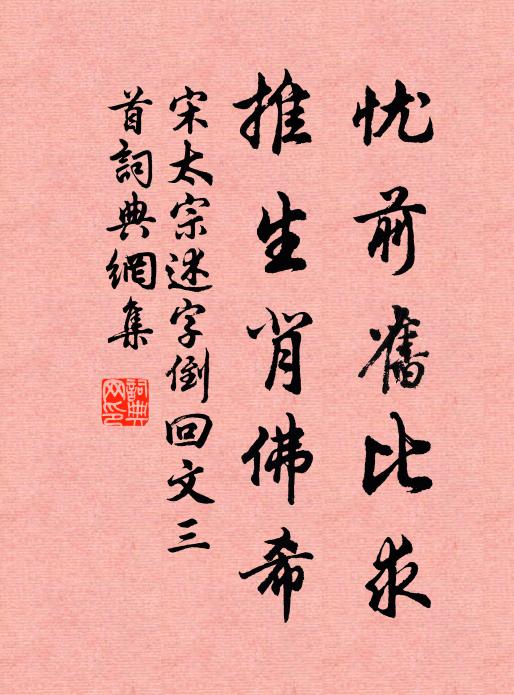 忧前旧比求
推生肖佛希
宋太宗述字倒回文三
首词典網集
詞典网印